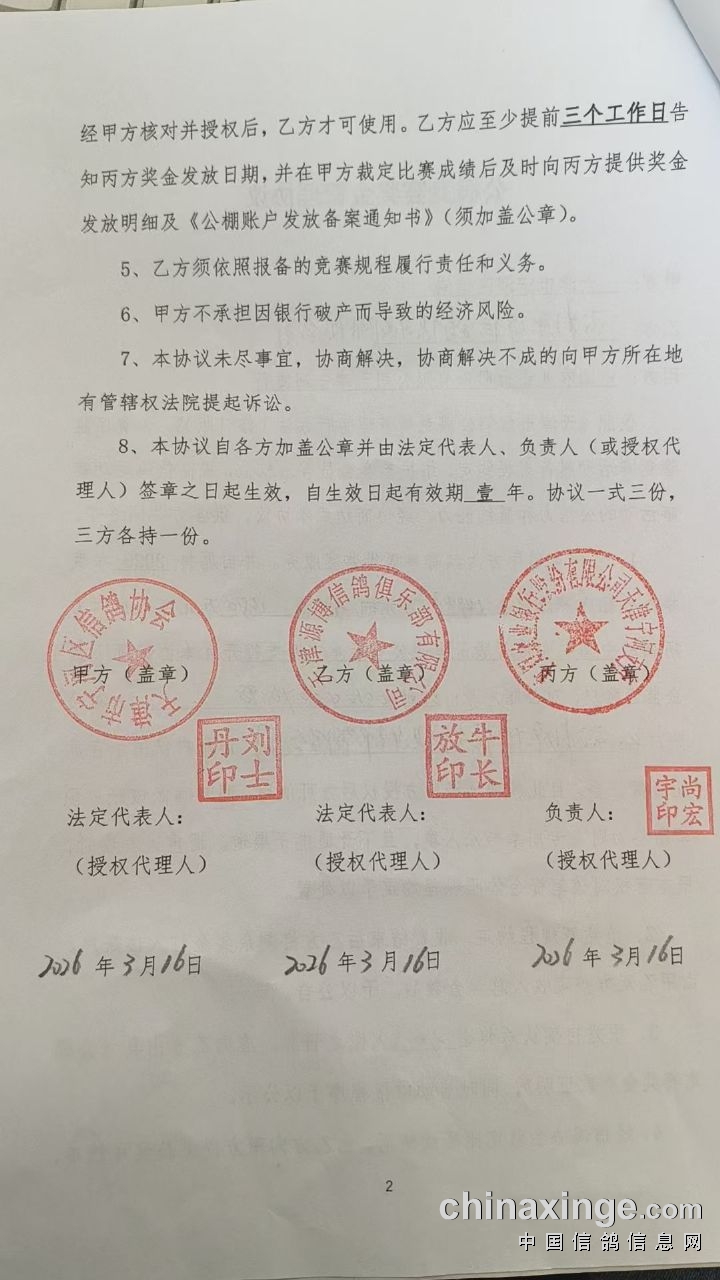 经甲方核对并授权后，乙方才可使用。乙方应至少提前三个工作日告
知丙方奖金发放日期，并在甲方裁定比赛成绩后及时向丙方提供奖金
发放明细及《公棚账户发放备案通知书》（须加盖公章）。
5、乙方须依照报备的竞赛规程履行责任和义务。
6、甲方不承担因银行破产而导致的经济风险。
7、本协议未尽事宜，协商解决，协商解决不成的向甲方所在地
有管辖权法院提起诉讼。
8、本协议自各方加盖公章并由法定代表人、负责人（或授权代
理人）签章之日起生效，自生效日起有效期 壹 年。协议一式三份，
三方各持一份。
天津市宁河区信鸽协会
天津源博信鸽俱乐部有限公司
业银行股份有限公司天津宁河支行
甲方（盖章） 乙方（盖章） 丙方（盖章）
刘士丹印
牛长放印
尚宏宇印
法定代表人： 法定代表人： 负责人：
（授权代理人） （授权代理人） （授权代理人）
2026 年 3 月 16 日 2026 年 3 月 16 日 2026 年 3 月 16 日
2
chinaxinge.com
中国信鸽信息网